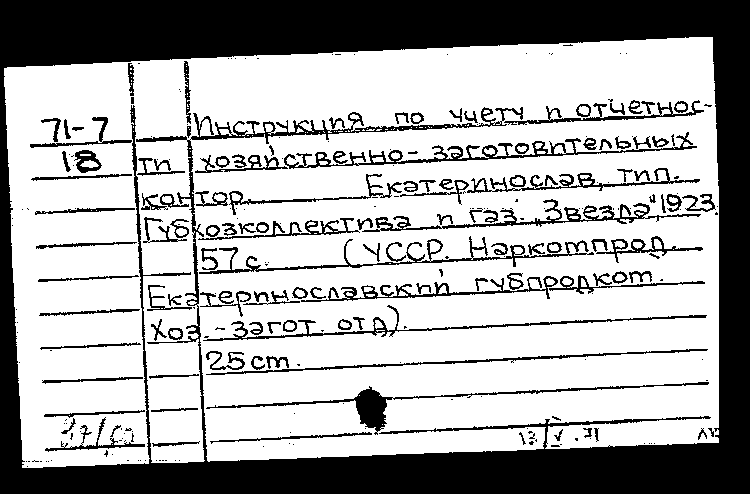 71-7 Инструкция по учету и отчетнос-
18 ти хозяйственно-заготовительных
контор. Екатеринослав, тип.
Губхозколлектива и газ. „Звезда", 1923.
57 с. (УССР. Наркомпрод.
Екатеринославский губпродком.
Хоз.-загот. отд).
25 cm.
13/V.71